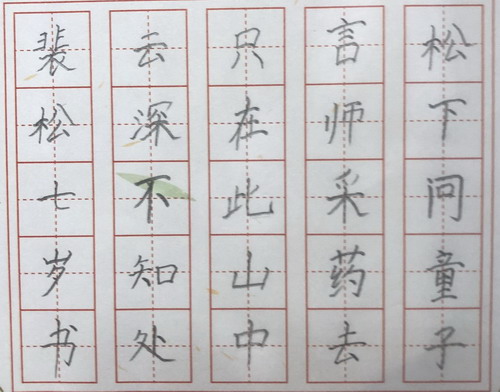 松下问童子
言师采药去
只在此山中
云深不知处
裴松七岁书